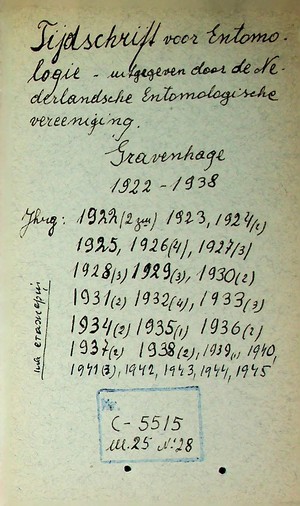 Tijdschrift voor Entomo-
logie - uitgegeven door de Ne-
derlandsche Entomologische
vereeniging.
Gravenhage
1922 - 1938
Jhrg: 1922 (2 ) 1923, 1924/2(
1925, 1926 (4), 1927/3/
1928 (3) 1929 (3), 1930 (2)
1931 (2) 1932 (4), 1933 (3)
1934 (2) 1935 (1) 1936 (2)
1937 (2) 1938 (2), 1939 (1) 1940,
1941 (3), 1942, 1943, 1944, 1945
на етажерці
C - 5515
Ш. 25 № 28